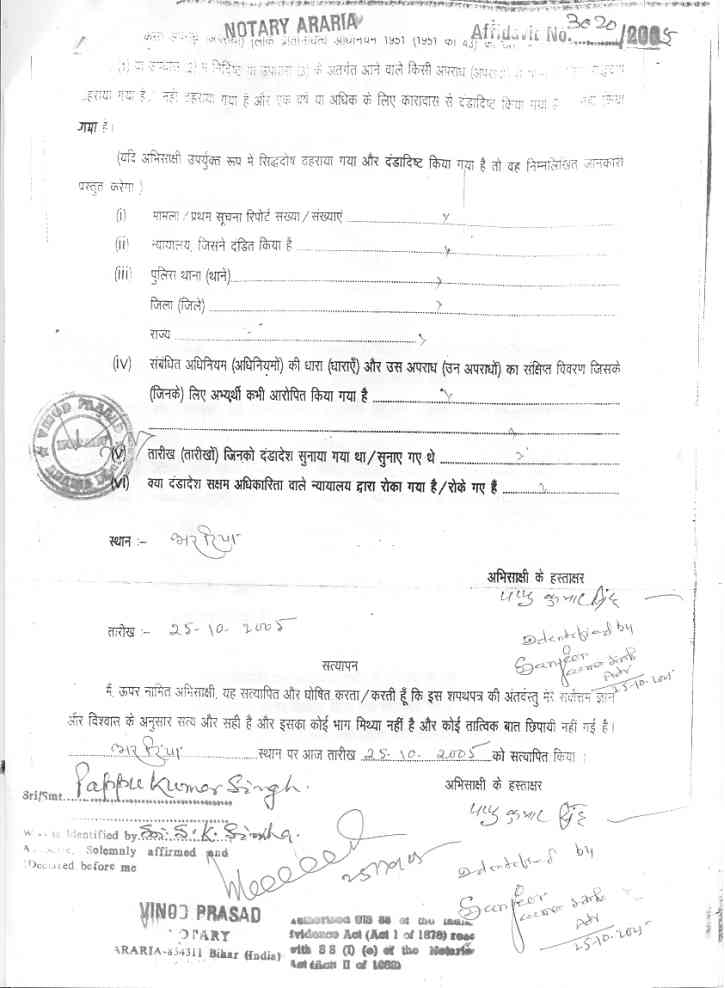 NOTARY ARARIA
Affidavit No. 3020/2005
(लोक प्रतिनिधित्व अधिनियम 1951 (1951 का 43)
(1) या उपधारा (2) में निर्दिष्ट या उपधारा (3) के अंतर्गत आने वाले किसी अपराध
ठहराया गया है / नहीं ठहराया गया है और एक वर्ष या अधिक के लिए कारावास से दंडादिष्ट किया गया है
गया है।
(यदि अभिसाक्षी उपर्युक्त रूप में सिद्धदोष ठहराया गया और दंडादिष्ट किया गया है तो वह निम्नलिखित जानकारी
प्रस्तुत करेगा )
(i) मामला / प्रथम सूचना रिपोर्ट संख्या / संख्याएं x
(ii) न्यायालय, जिसने दंडित किया है x
(iii) पुलिस थाना (थाने) x
जिला (जिले) x
राज्य x
(iv) संबंधित अधिनियम (अधिनियमों) की धारा (धाराएँ) और उस अपराध (उन अपराधों) का संक्षिप्त विवरण जिसके
(जिनके) लिए अभ्यर्थी कभी आरोपित किया गया है x
x
(v) तारीख (तारीखों) जिनको दंडादेश सुनाया गया था / सुनाए गए थे x
(vi) क्या दंडादेश सक्षम अधिकारिता वाले न्यायालय द्वारा रोका गया है / रोके गए है x
स्थान :- अररिया
अभिसाक्षी के हस्ताक्षर
पप्पु कुमार सिंह
तारीख :- 25-10-2005
Identified by
Adv
25-10-2005
सत्यापन
मैं, ऊपर नामित अभिसाक्षी, यह सत्यापित और घोषित करता / करती हूँ कि इस शपथपत्र की अंतवस्तु मेरे सर्वोत्तम ज्ञान
और विश्वास के अनुसार सत्य और सही है और इसका कोई भाग मिथ्या नहीं है और कोई तात्विक बात छिपायी नहीं गई है।
अररिया स्थान पर आज तारीख 25-10-2005 को सत्यापित किया :
Sri/Smt. Pappu Kumar Singh.
अभिसाक्षी के हस्ताक्षर
पप्पु कुमार सिंह
Who is Identified by Sri S. K. Sinha.
Solemnly affirmed and
Declared before me
Identified by
Adv
25-10-2005
VINOD PRASAD
NOTARY
ARARIA-854311 Bihar (India)
Authorised U/S 88 of the India
Evidence Act (Act 1 of 1872) read
with S 8 (1) (e) of the Notaries
Act